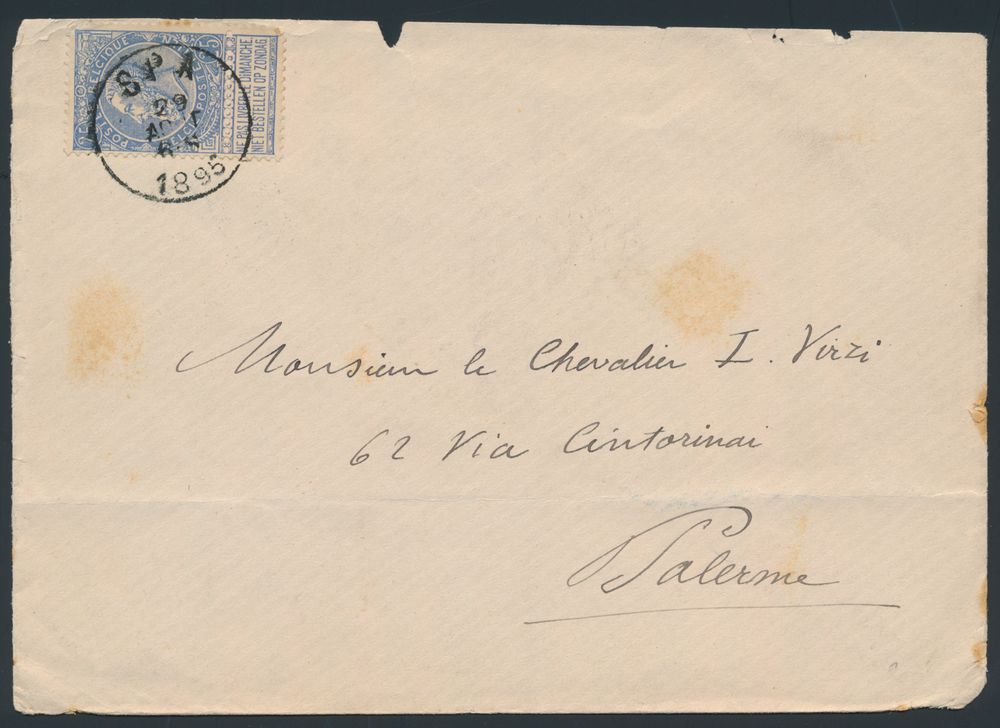 SPA
29
1895
POSTES BELGIQUE
NE PAS LIVRER LE DIMANCHE
NIET BESTELLEN OP ZONDAG
Monsieur le Chevalier I. Virzi
62 Via Cintorinai
Palerme